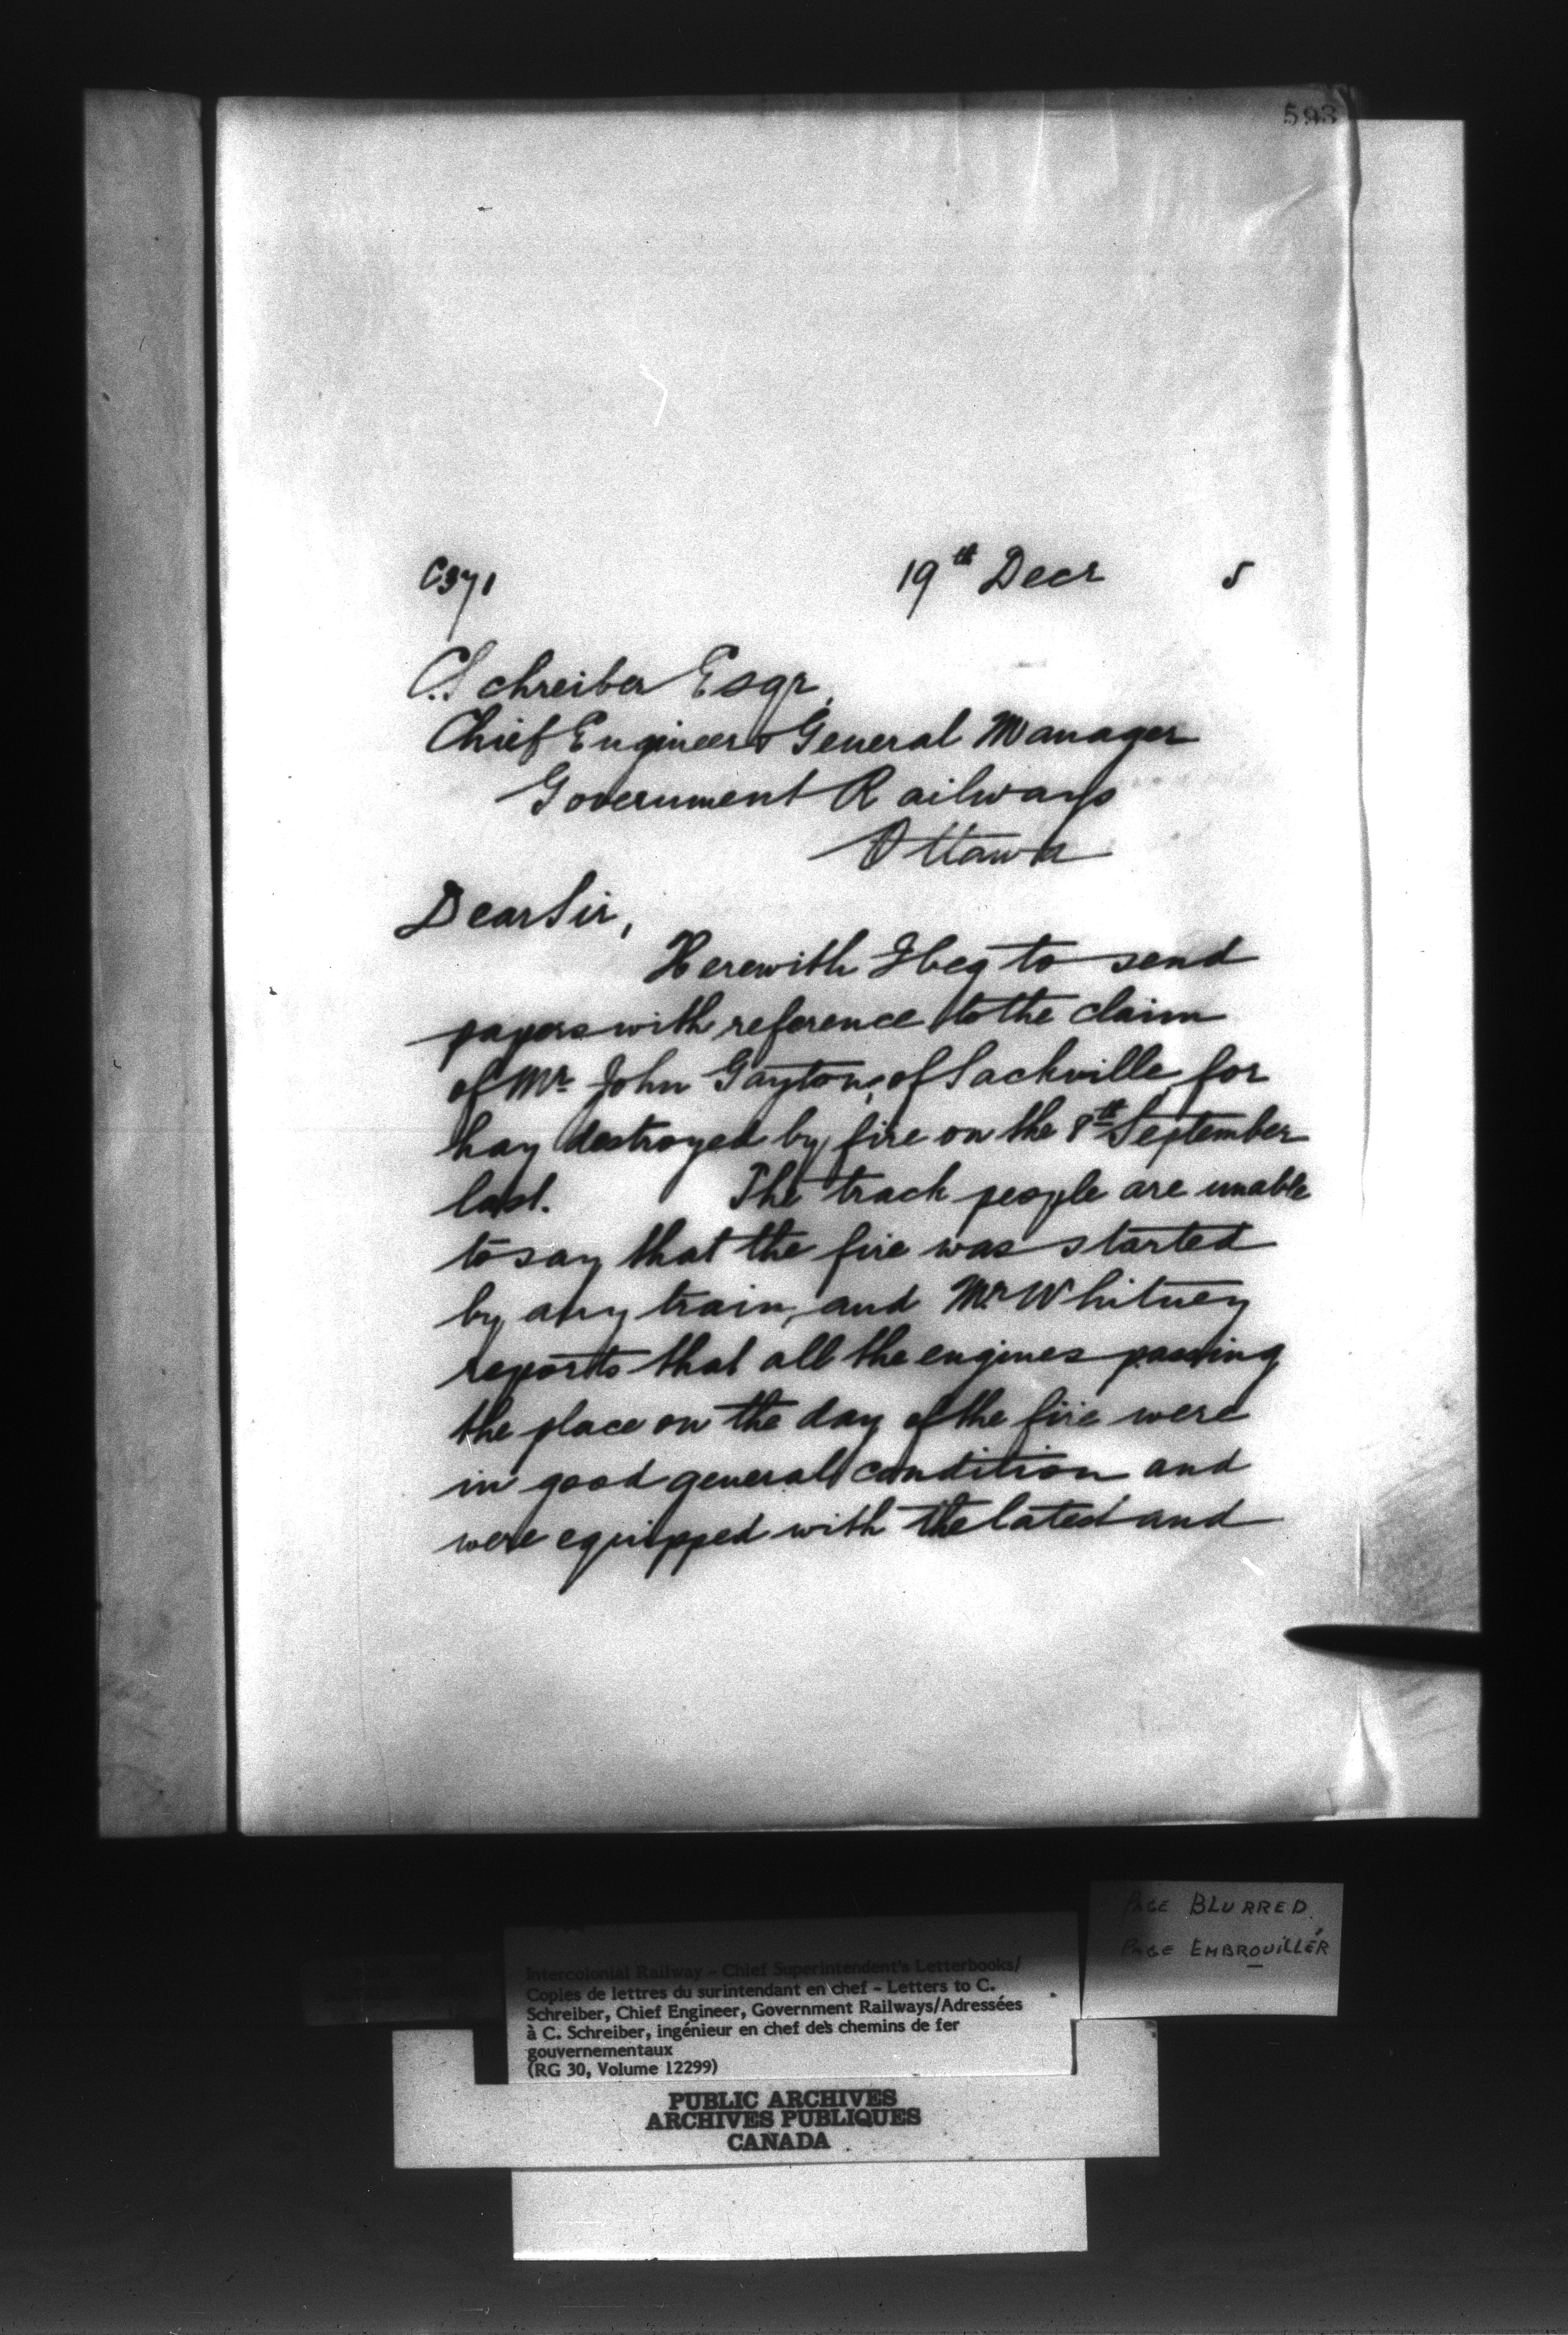 593
C371 19th Decr 5
C. Schreiber Esqr,
Chief Engineer & General Manager
Government Railways
Ottawa
Dear Sir,
Herewith I beg to send
papers with reference to the claim
of Mr John Gayton, of Sackville, for
hay destroyed by fire on the 8th September
last. The track people are unable
to say that the fire was started
by any train, and Mr Whitney
reports that all the engines passing
the place on the day of the fire were
in good general condition and
were equipped with the latest and
PAGE BLURRED
PAGE EMBROUILLÉR
Intercolonial Railway - Chief Superintendent's Letterbooks/
Copies de lettres du surintendant en chef - Letters to C.
Schreiber, Chief Engineer, Government Railways/Adressées
à C. Schreiber, ingénieur en chef des chemins de fer
gouvernementaux
(RG 30, Volume 12299)
PUBLIC ARCHIVES
ARCHIVES PUBLIQUES
CANADA